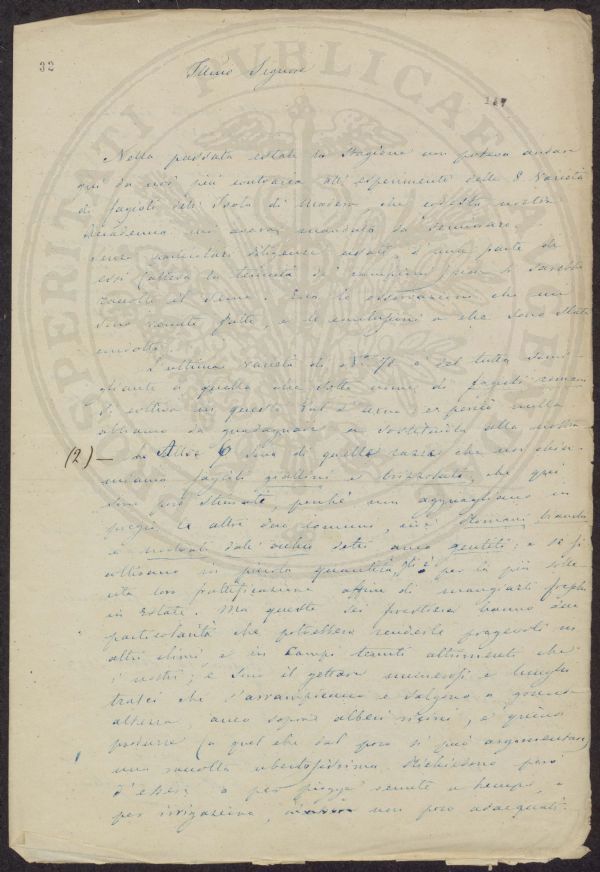 32
Illmo Signore
117
Nella passata estate la Stagione non poteva andar
qui da noi più contraria all' esperimento delle 8 varietà
di fagioli dell' Isola di Madera, che codesta nostra
Accademia mi aveva mandati da seminare.
Senza particolari diligenze usate, d'una parte di
essi (attesa la tenuità de' campioni) non si sarebbe
raccolto il seme. Ecco le osservazioni che mi
sono venute fatte, e le conclusioni a che sono stato
condotto.
L'ultima varietà di N.º 71 è del tutto somi-
gliante a quella che sotto nome di fagioli romani
si coltiva in queste e perciò nulla
abbiamo da guadagnare a sostituirla alla nostra
(2) — Altre 6 sono di quelle razze che noi chia-
miamo fagioli giallini e brizzolati, che qui
son poco stimati, perchè non agguagliano in
pregio le altre due comuni, cioè Romani bianchi
e dall' occhio detti anco gentili; e se si
coltivano in piccola quantità, è per la più solle-
cita loro fruttificazione affine di mangiarli freschi
in Estate. Ma queste sei hanno due
particolarità che potrebbero renderle pregevoli in
altri climi, e in Campi tenuti altrimenti che
i nostri; e sono il gettare numerosi e lunghi
tralci che s'arrampicano e salgono a
altezza anco sopra alberi vicini, e quindi
produrre (a quel che dal poco si può argomentare)
una raccolta ubertosissima. Richiedono però
d'essere o per piogge venute a tempo, o
per irrigazione, non poco adacquati.